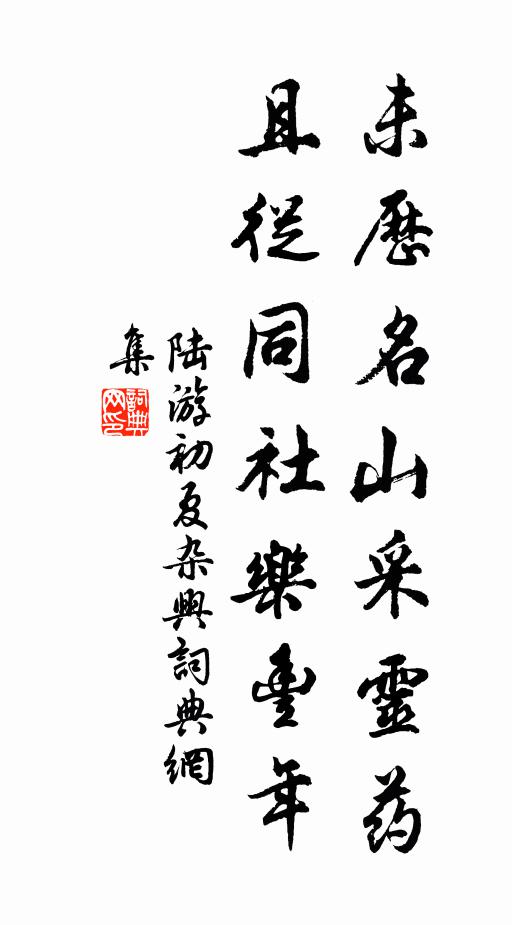 未歷名山采靈药
且從同社樂豐年
陆游初夏杂興詞典網
集
詞典网印